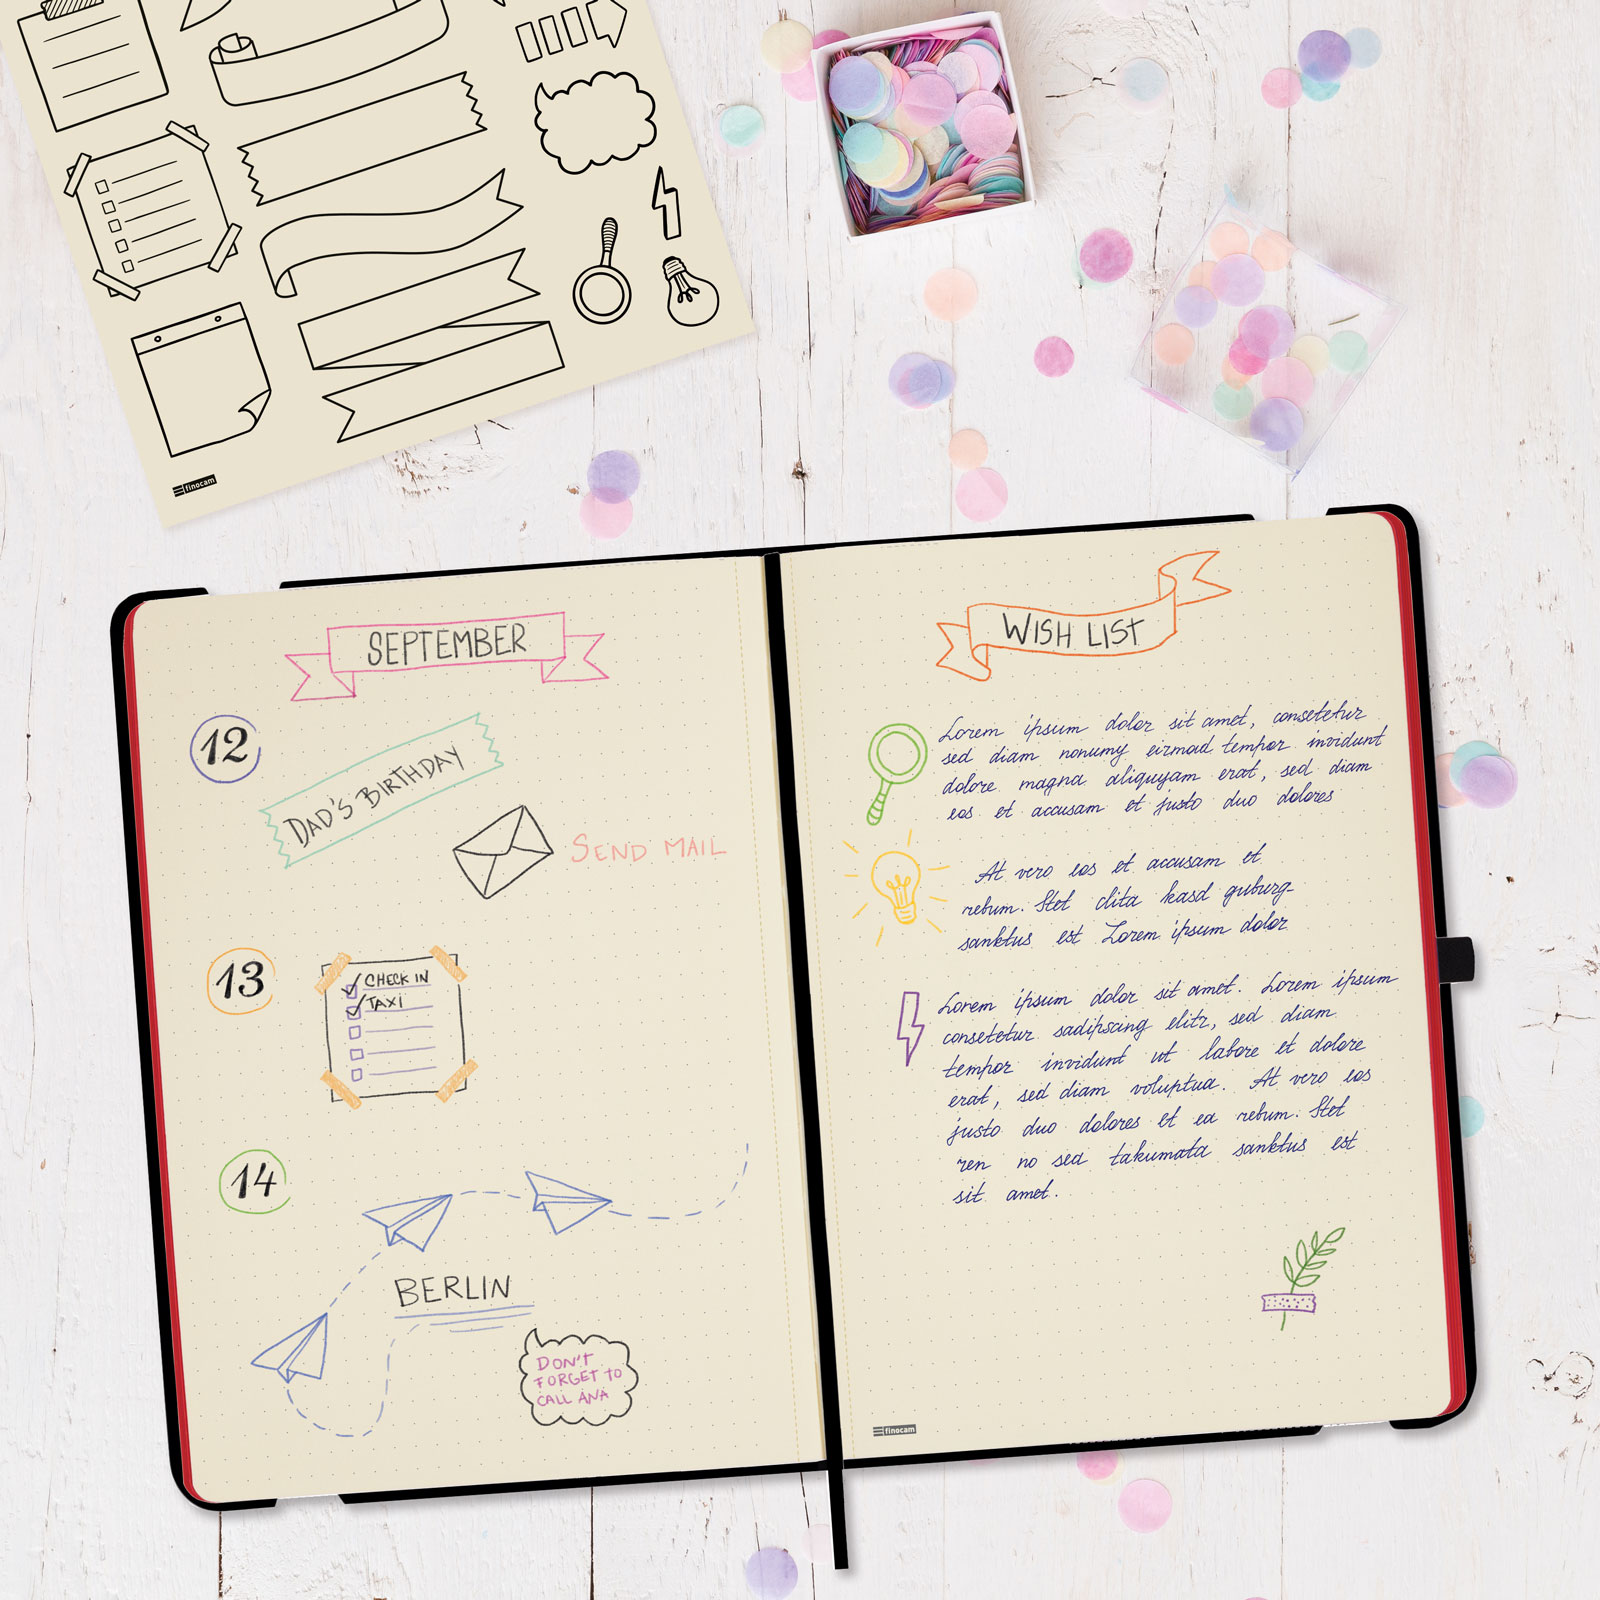 finocam
SEPTEMBER
12
DAD'S BIRTHDAY
SEND MAIL
13
CHECK IN
TAXI
14
BERLIN
DON'T
FORGET TO
CALL ANA
WISH LIST
Lorem ipsum dolor sit amet, consetetur
sed diam nonumy eirmod tempor invidunt
dolore magna aliquyam erat, sed diam
eos et accusam et justo duo dolores
At vero eos et accusam et
rebum. Stet clita kasd guburg-
sanktus est Lorem ipsum dolor
Lorem ipsum dolor sit amet. Lorem ipsum
consetetur sadipscing elitr, sed diam
tempor invidunt ut labore et dolore
erat, sed diam voluptua. At vero eos
justo duo dolores et ea rebum. Stet
ren no sea takumata sanktus est
sit amet.
finocam